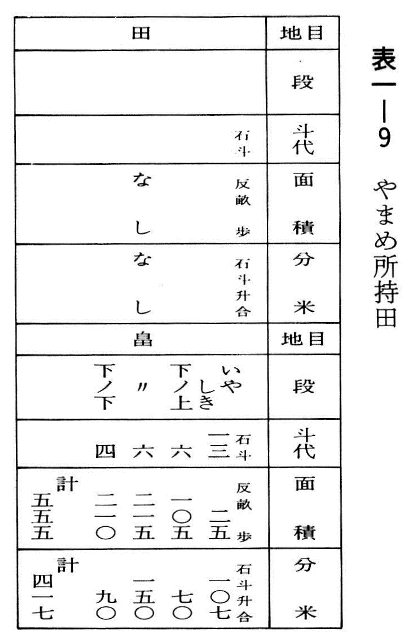 表一—9 やまめ所持田
地目 田
段
斗代 石斗
面積 反畝歩 なし
分米 石斗升合 なし
地目 畠
段 いやしき 下ノ上 〃 下ノ下
斗代 石斗 一三 六 六 四
面積 反畝歩 二五 一〇五 二一五 二一〇 計 五五五
分米 石斗升合 一〇七 七〇 一五〇 九〇 計 四一七